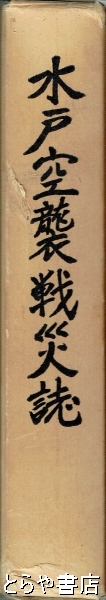 水戸空襲戦災誌
とらや書店